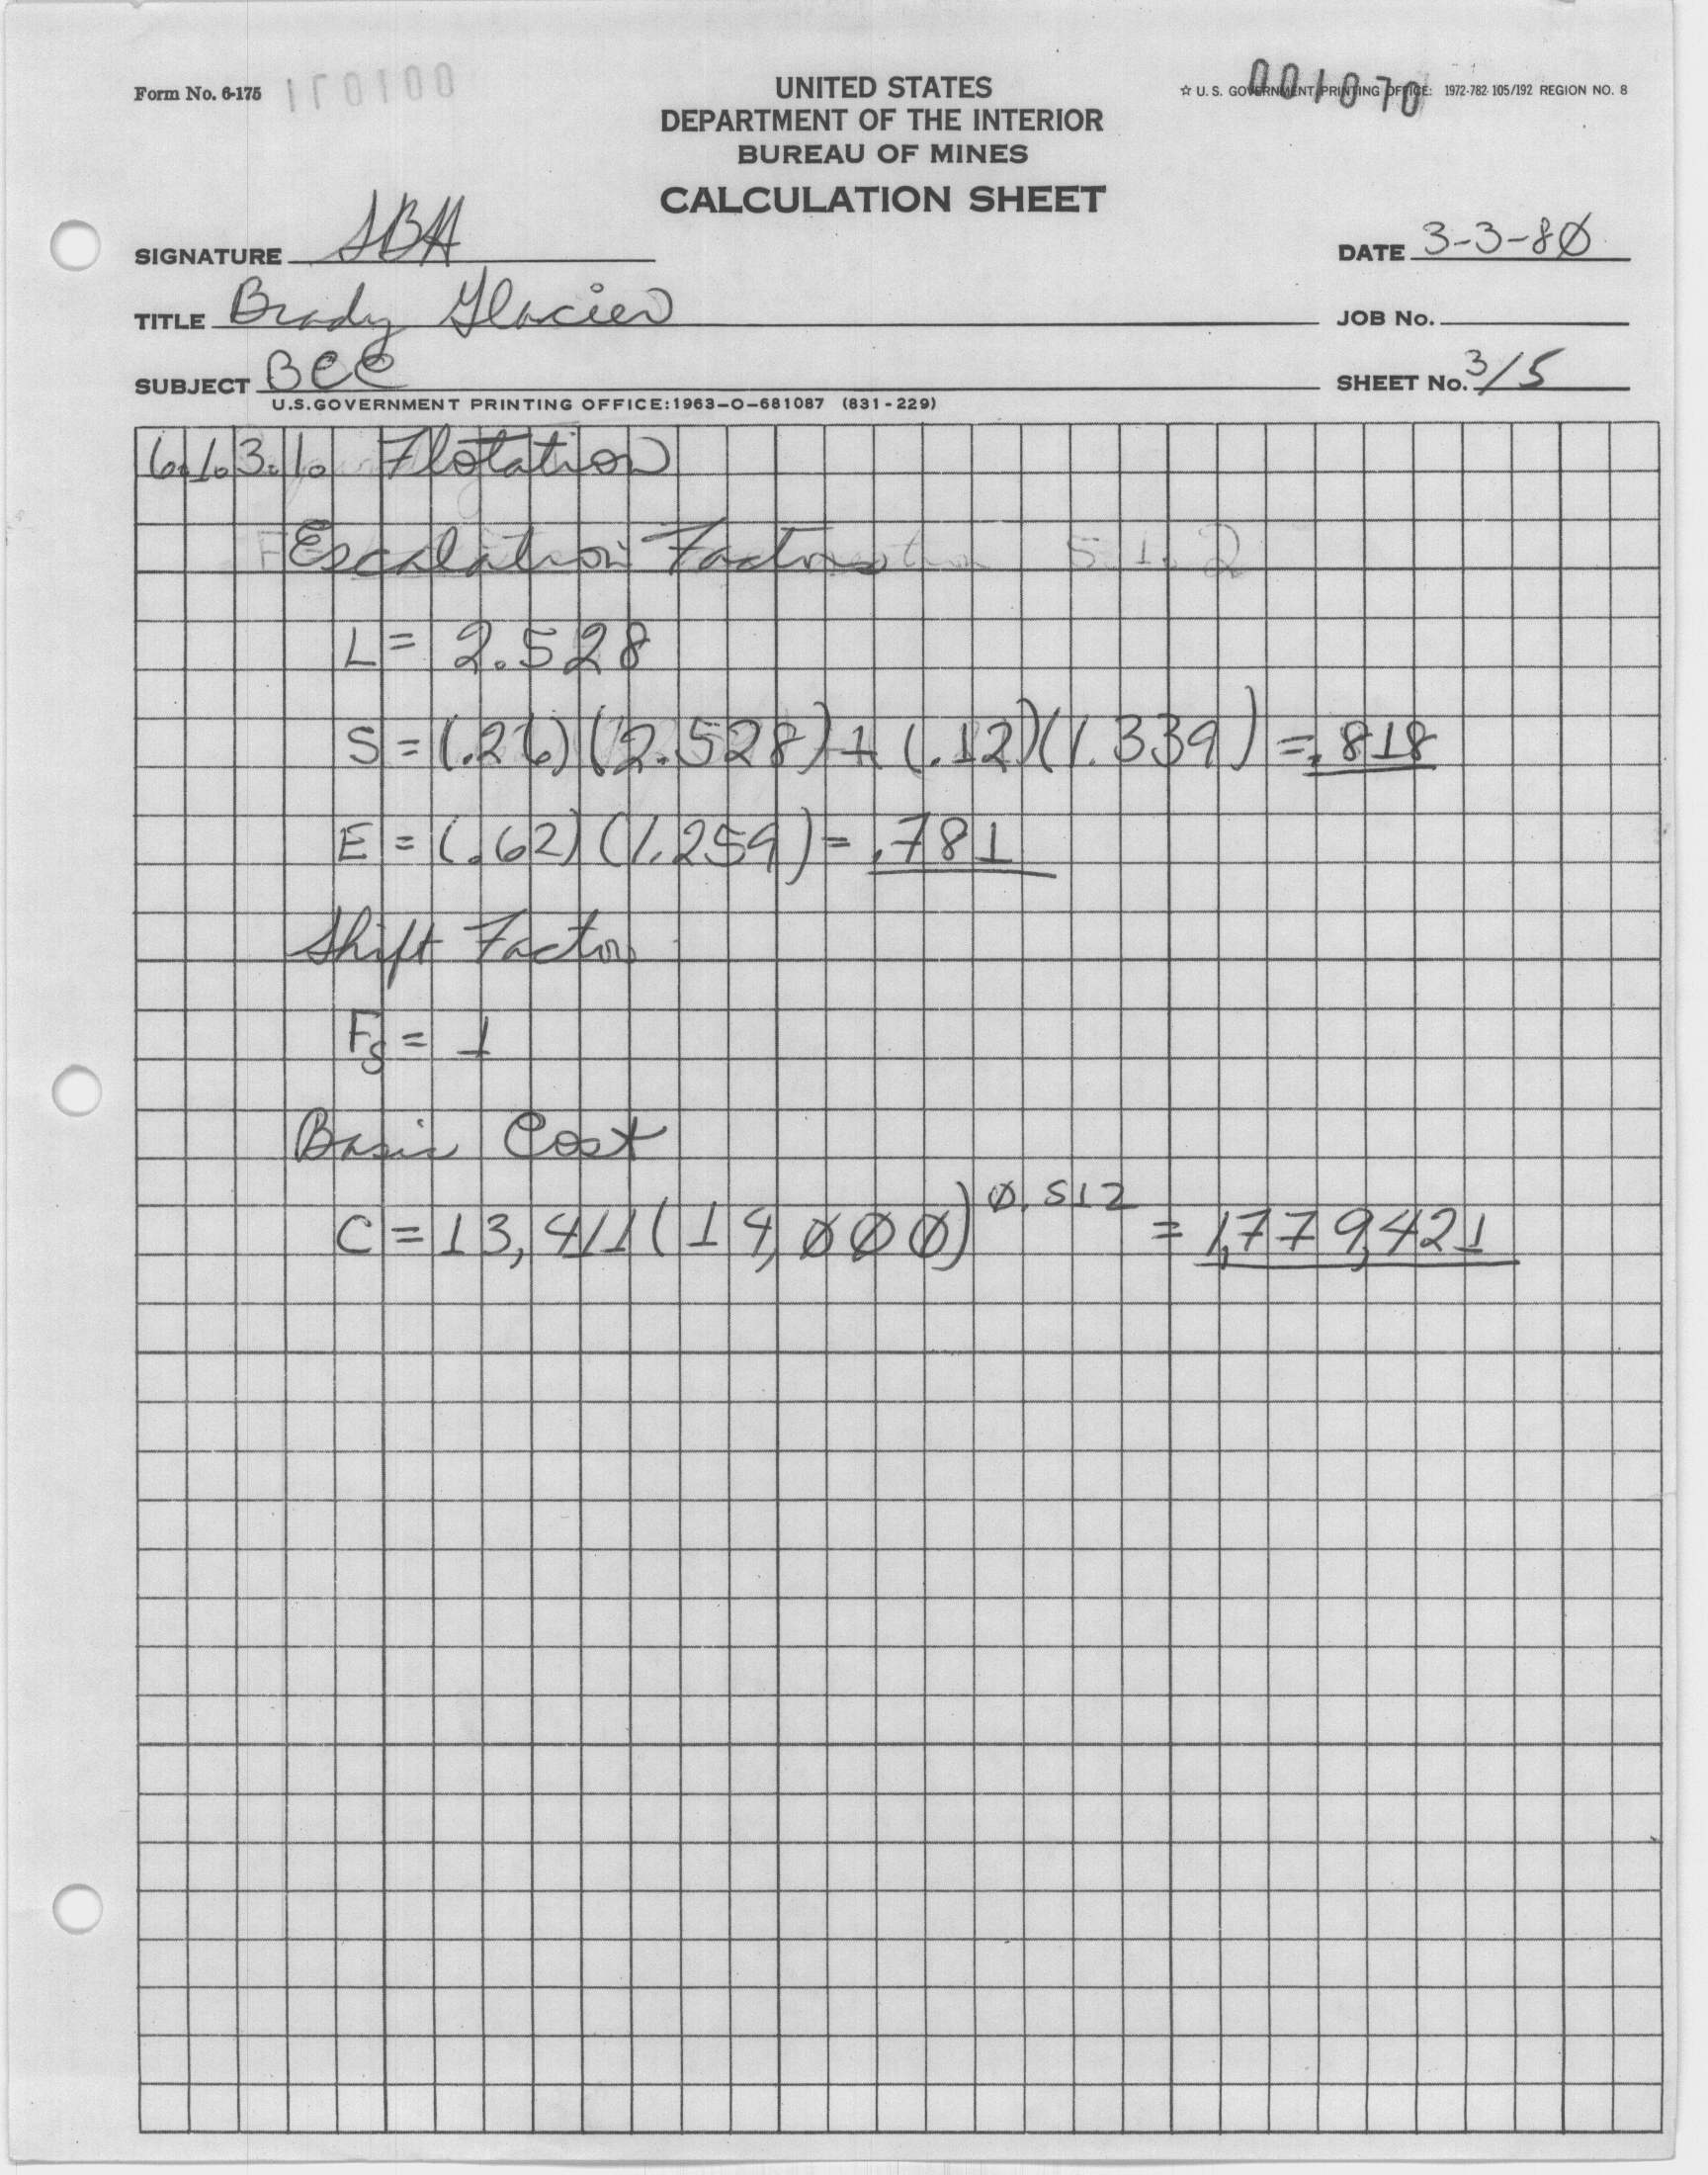 Form No. 6-175
UNITED STATES
DEPARTMENT OF THE INTERIOR
BUREAU OF MINES
CALCULATION SHEET
☆ U. S. GOVERNMENT PRINTING OFFICE: 1972-782-105/192 REGION NO. 8
001070
SIGNATURE SBH
DATE 3-3-80
TITLE Brady Glacier
JOB No.
SUBJECT BCC
SHEET No. 3/5
U.S.GOVERNMENT PRINTING OFFICE:1963-O-681087 (831-229)
6.1.3.1. Flotation
Escalation Factors
L = 2.528
S = (.26)(2.528) + (.12)(1.339) = .818
E = (.62)(1.259) = .781
Shift Factor
Fs = 1
Basic Cost
C = 13,411(14,000)^0.512 = 1,779,421